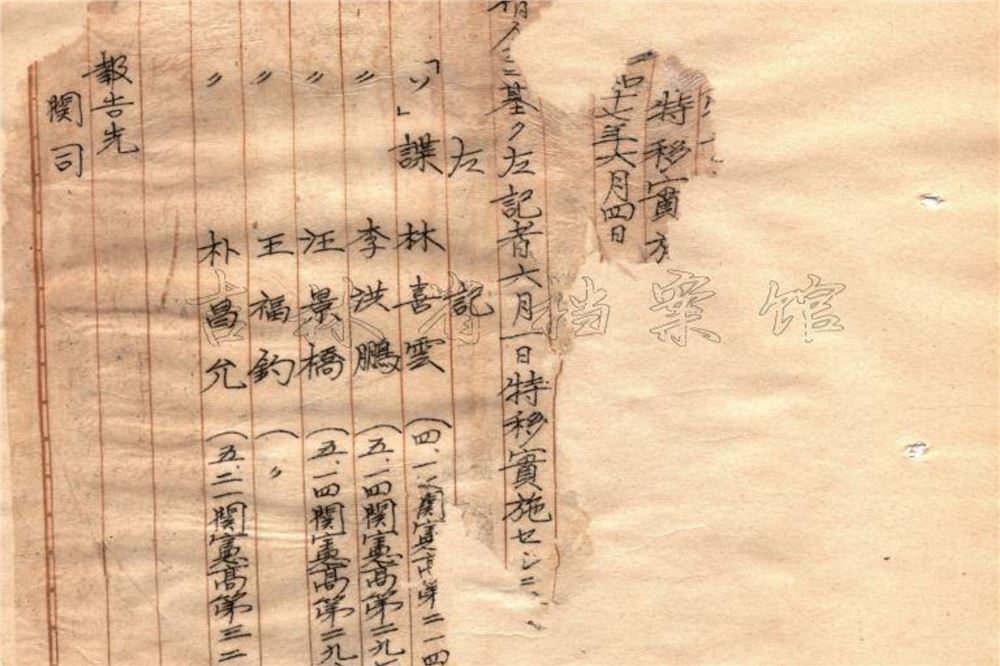 特移實
昭十七年六月四日
基ク左記者六月一日特移實施セシニ、
左記
「ソ」諜 林喜雲 (四、一
〃 李洪鵬 (五、一四関憲高第二九
〃 汪景橋 (五、一四関憲高第二九
〃 王福釣 (〃
〃 朴昌允 (五、二一関憲高第三二
報告先
関司
吉林省档案馆